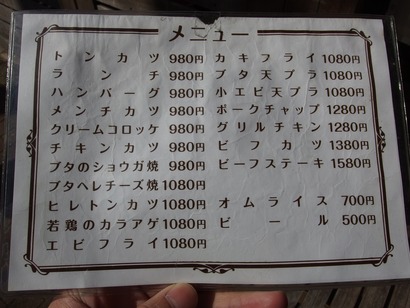 メニュー
トンカツ 980円
ランチ 980円
ハンバーグ 980円
メンチカツ 980円
クリームコロッケ 980円
チキンカツ 980円
ブタのショウガ焼 980円
ブタヘレチーズ焼 1080円
ヒレトンカツ 1080円
若鶏のカラアゲ 1080円
エビフライ 1080円
カキフライ 1080円
ブタ天プラ 1080円
小エビ天プラ 1080円
ポークチャップ 1280円
グリルチキン 1280円
ビフカツ 1380円
ビーフステーキ 1580円
オムライス 700円
ビール 500円